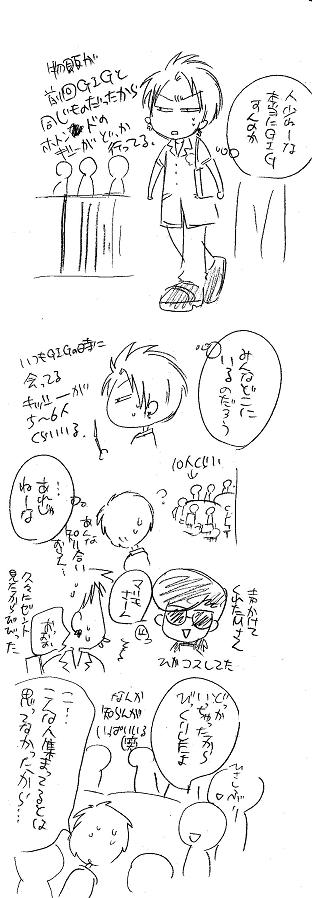 物販が
前回GIGと
同じものだったから
ホトンドの
キッズーがどっか
行ってる。
人少ねーな
本当にGIG
すんのか
いつもGIGの時に
会ってる
キッズーが
5〜6人
くらいいる。
みんなどこに
いるのだろう
10人くらい
↓
?
あんな
知り合い
おらん…
…
あれじゃ
ねーな
声かけて
くれたひさくん
マサキー
ひびコスしてた
おおっ
久々にゼント
見たからびびった
どっか
いっちゃったから
びっくりしたよ
ひさしぶりー
なんか
知らんが
いっぱいいる
こ…
こんな人集まってるとは
思ってなかったから…